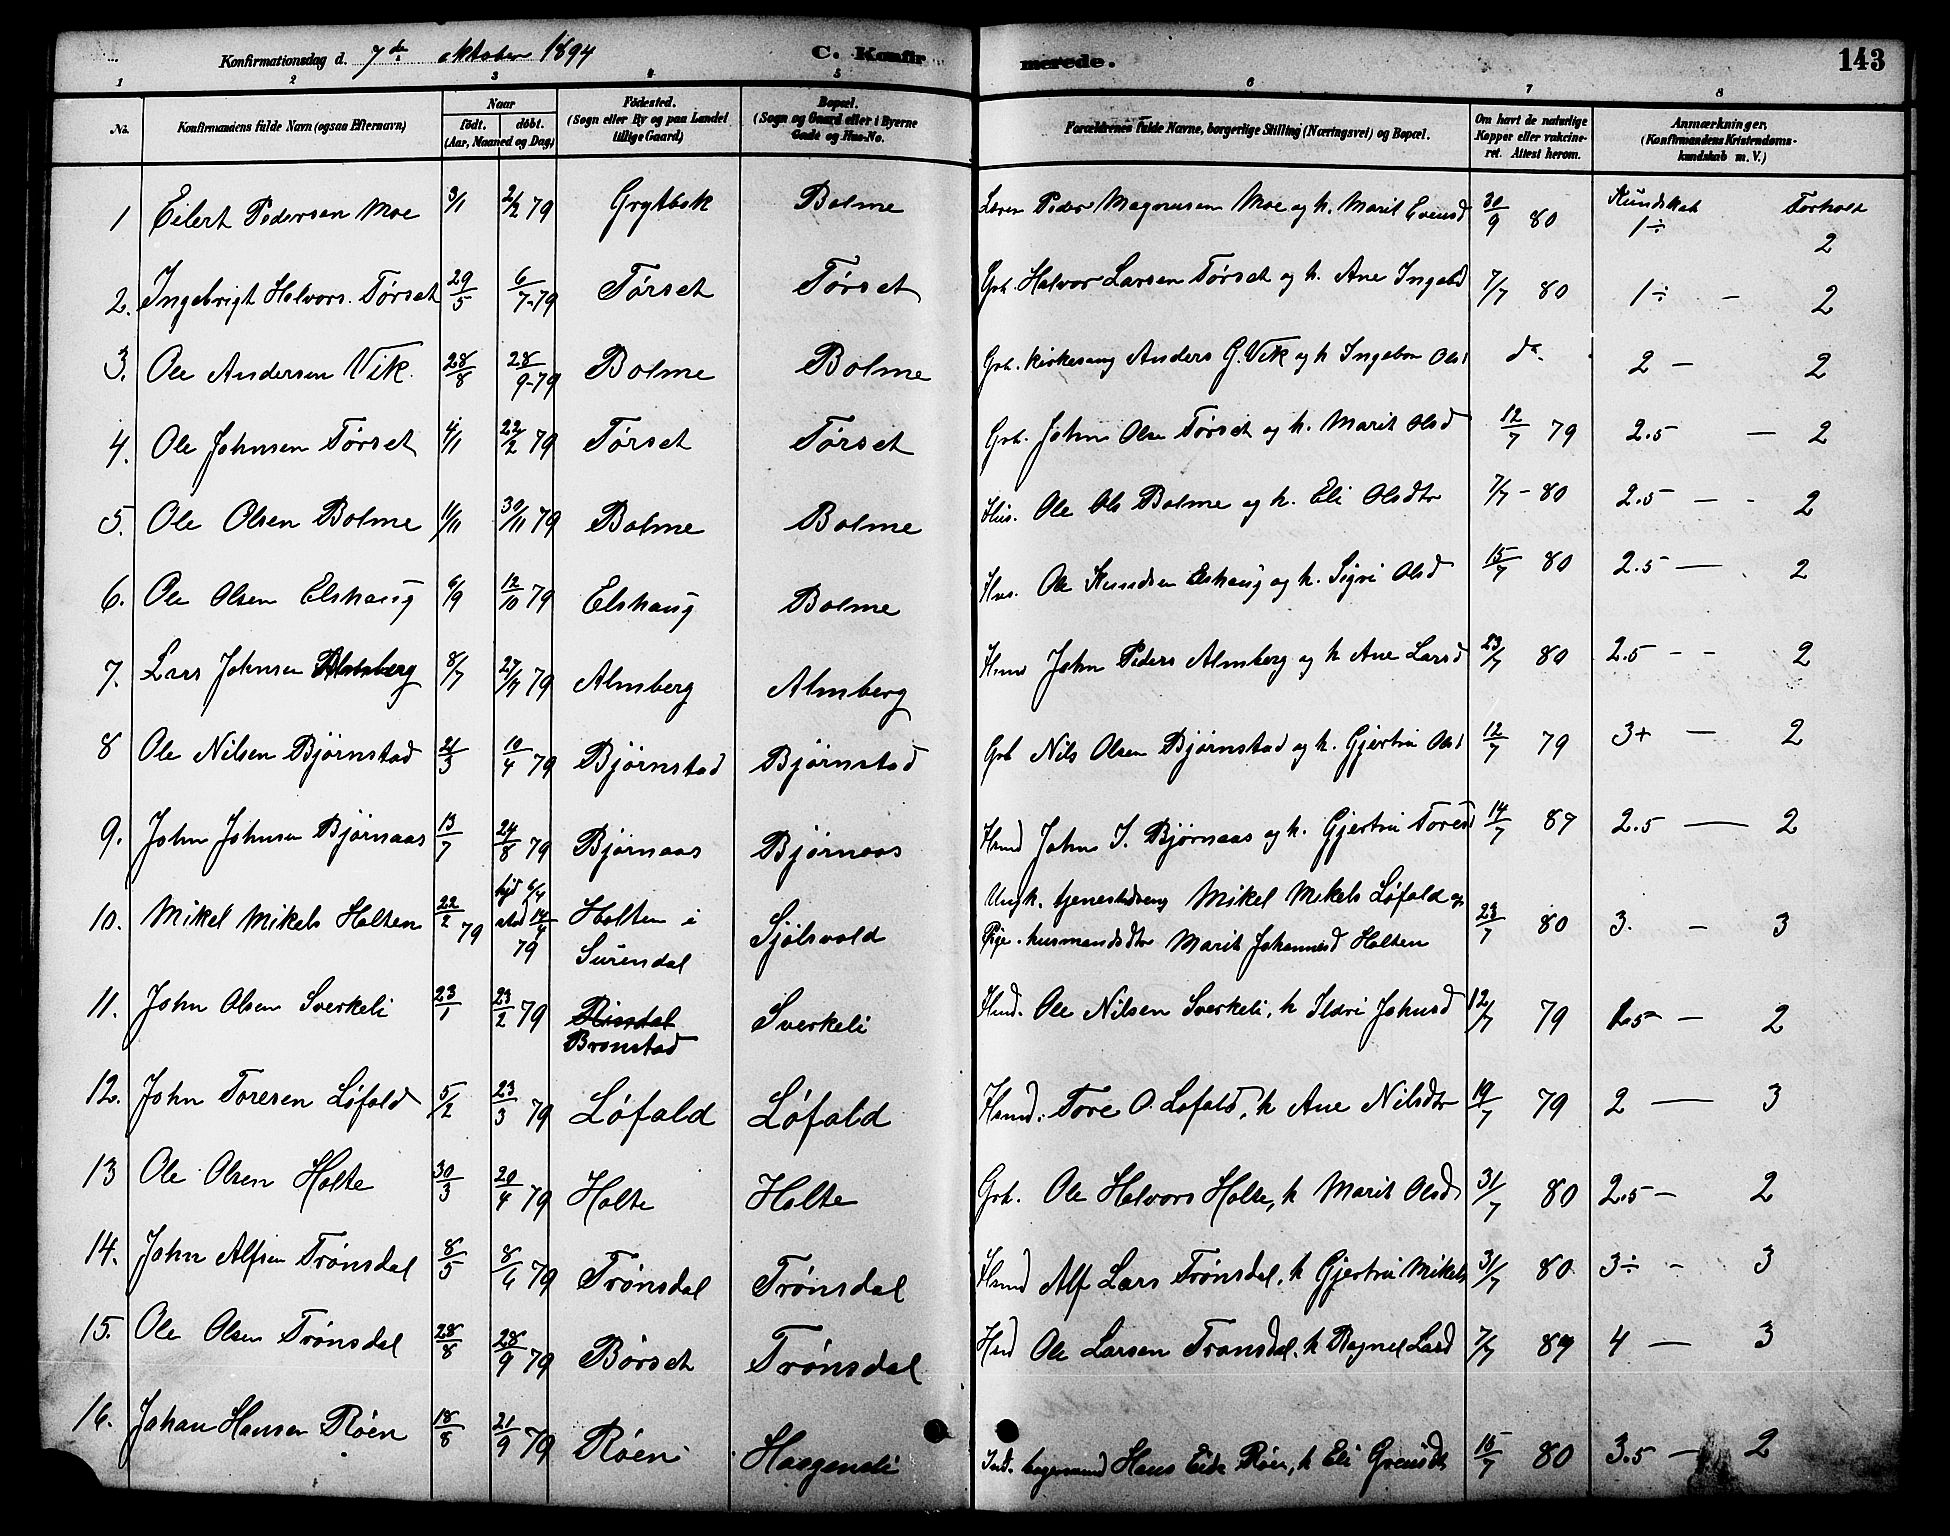 Konfirmationsdag d. 7de oktober 1894 C. Konfirmerede. 143
1 2 3 4 5 6 7 8
No. Konfirmandens fulde Navn (ogsaa Efternavn) Naar født. døbt. (Aar, Maaned og Dag) Fødested. (Sogn eller By og paa Landet tillige Gaard) Bopæl. (Sogn og Gaard eller i Byerne Gade og Hus-No. Forældrenes fulde Navne, borgerlige Stilling (Næringsvei) og Bopæl. Om havt de naturlige Kopper eller vakcineret. Attest herom. Anmærkninger, (Konfirmandens Kristendomskundskab m. V.)
Kundskab Forhold
1 Eilert Pedersen Moe 3/1 2/2 79 Grytbak Bolme Peder Magnusen Moe og h. Marit Evensd 30/9 80 1÷ 2
2. Ingebrigt Halvors. Tørset 29/5 6/7-79 Tørset Tørset Grb. Halvor Larsen Tørset og h. Ane Ingebd 7/7 80 1÷ - 2
3. Ole Andersen Vik 28/8 28/9-79 Bolme Bolme Grb. kirkesang Anders G. Vik og h Ingebor Olsd do. 2 - 2
4. Ole Johnsen Tørset 4/1 22/2 79 Tørset Tørset Grb. John Olsen Tørset og h. Marit Olsd 12/7 79 2.5 - 2
5. Ole Olsen Bolme 11/11 30/11 79 Bolme Bolme Hus. Ole Ols Bolme og h. Eli Olsdtr 7/7 - 80 2.5 - - 2
6. Ole Olsen Elshaug 6/9 12/10 79 Elshaug Bolme Hus. Ole Knudsen Elshaug og h. Sigri Olsd 15/7 80 2.5 - 2
7. Lars Johnsen Almberg 8/7 27/7 79 Almberg Almberg Hmd John Peders Almberg og h Ane Larsd 23/7 80 2.5 - - 2
8 Ole Nilsen Bjørnstad 21/3 10/4 79 Bjørnstad Bjørnstad Grb Nils Olsen Bjørnstad og h. Gjertru Olsd 12/7 79 3+ - 2
9. John Johnsen Bjørnaas 13/7 24/8 79 Bjørnaas Bjørnaas Hmd John J. Bjørnaas og h. Gjertru Toresd 14/7 87 2.5 - 2
10. Mikel Mikels Holten 22/2 79 hjd 6/4 stad 14/4 79 Holten i Surendal Sjølsvold Ungk. tjenestedreng Mikel Mikels Løfald og
Pige. husmandsdtr Marit Johannesd Holten 23/7 80 3. - 3
11. John Olsen Sverkeli 23/1 23/2 79 Rindal Brønstad Sverkeli Hmd. Ole Nilsen Sverkeli, h Ildri Johnsd 12/7 79 2.5 - 2
12. John Toresen Løfald 5/2 23/3 79 Løfald Løfald Hmd. Tore O. Løfald, h Ane Nilsdtr 19/7 79 2 - 3
13 Ole Olsen Holte 30/3 20/4 79 Holte Holte Grb. Ole Halvors Holte, h Marit Olsd 31/7 80 2.5 - 2
14. John Alfsen Trønsdal 8/5 8/6 79 Trønsdal Trønsdal Hmd Alf Lars Trønsdal, h Gjertru Mikels 31/7 80 3÷ - 3
15. Ole Olsen Trønsdal 28/8 28/9 79 Børset Trønsdal Hmd Ole Larsen Trønsdal. h Ragnel Larsd 7/7 89 4 - 3
16. Johan Hansen Røen 18/8 21/9 79 Røen Haagensli Hans Eide Røen, h Eli 15/7 80 3.5 - 2